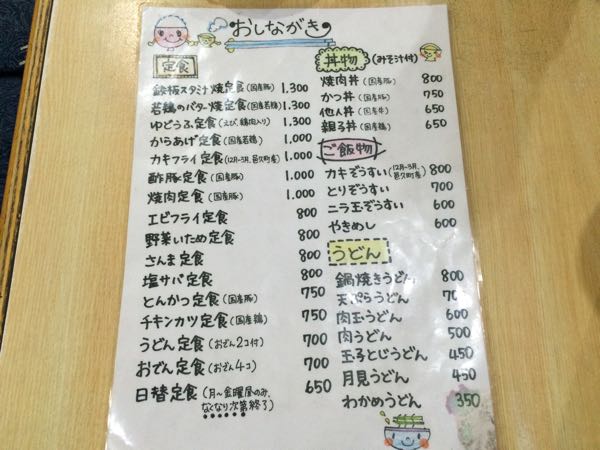 おしながき
定食
鉄板スタミナ焼定食(国産豚) 1.300
若鶏のバター焼定食(国産若鶏) 1.300
ゆどうふ定食(えび、鶏肉入り) 1.300
からあげ定食(国産若鶏) 1.000
カキフライ定食(12月~3月、邑久町産) 1.000
酢豚定食(国産豚) 1.000
焼肉定食(国産豚) 1.000
エビフライ定食 800
野菜いため定食 800
さんま定食 800
塩サバ定食 800
とんかつ定食(国産豚) 750
チキンカツ定食(国産鶏) 750
うどん定食(おでん2コ付) 700
おでん定食(おでん4コ) 700
日替定食(月~金曜日のみ、 650
なくなり次第終了)
丼物(みそ汁付)
焼肉丼(国産豚) 800
かつ丼(国産豚) 750
他人丼(国産牛) 650
親子丼(国産鶏) 650
ご飯物
カキぞうすい(12月~3月、邑久町産) 800
とりぞうすい 700
ニラ玉ぞうすい 600
やきめし 600
うどん
鍋焼きうどん 800
天ぷらうどん 70
肉玉うどん 600
肉うどん 500
玉子とじうどん 450
月見うどん 450
わかめうどん 350